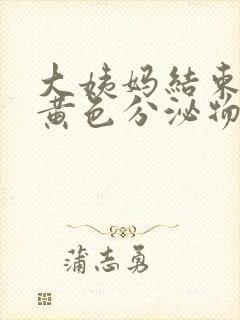 大姨妈結束
黄色分泌物
蒲志勇